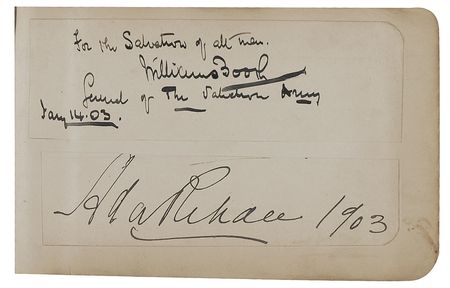 For the Salvation of all men.
William Booth
General of The Salvation Army
Jany 14.03.
Ada Rehan 1903